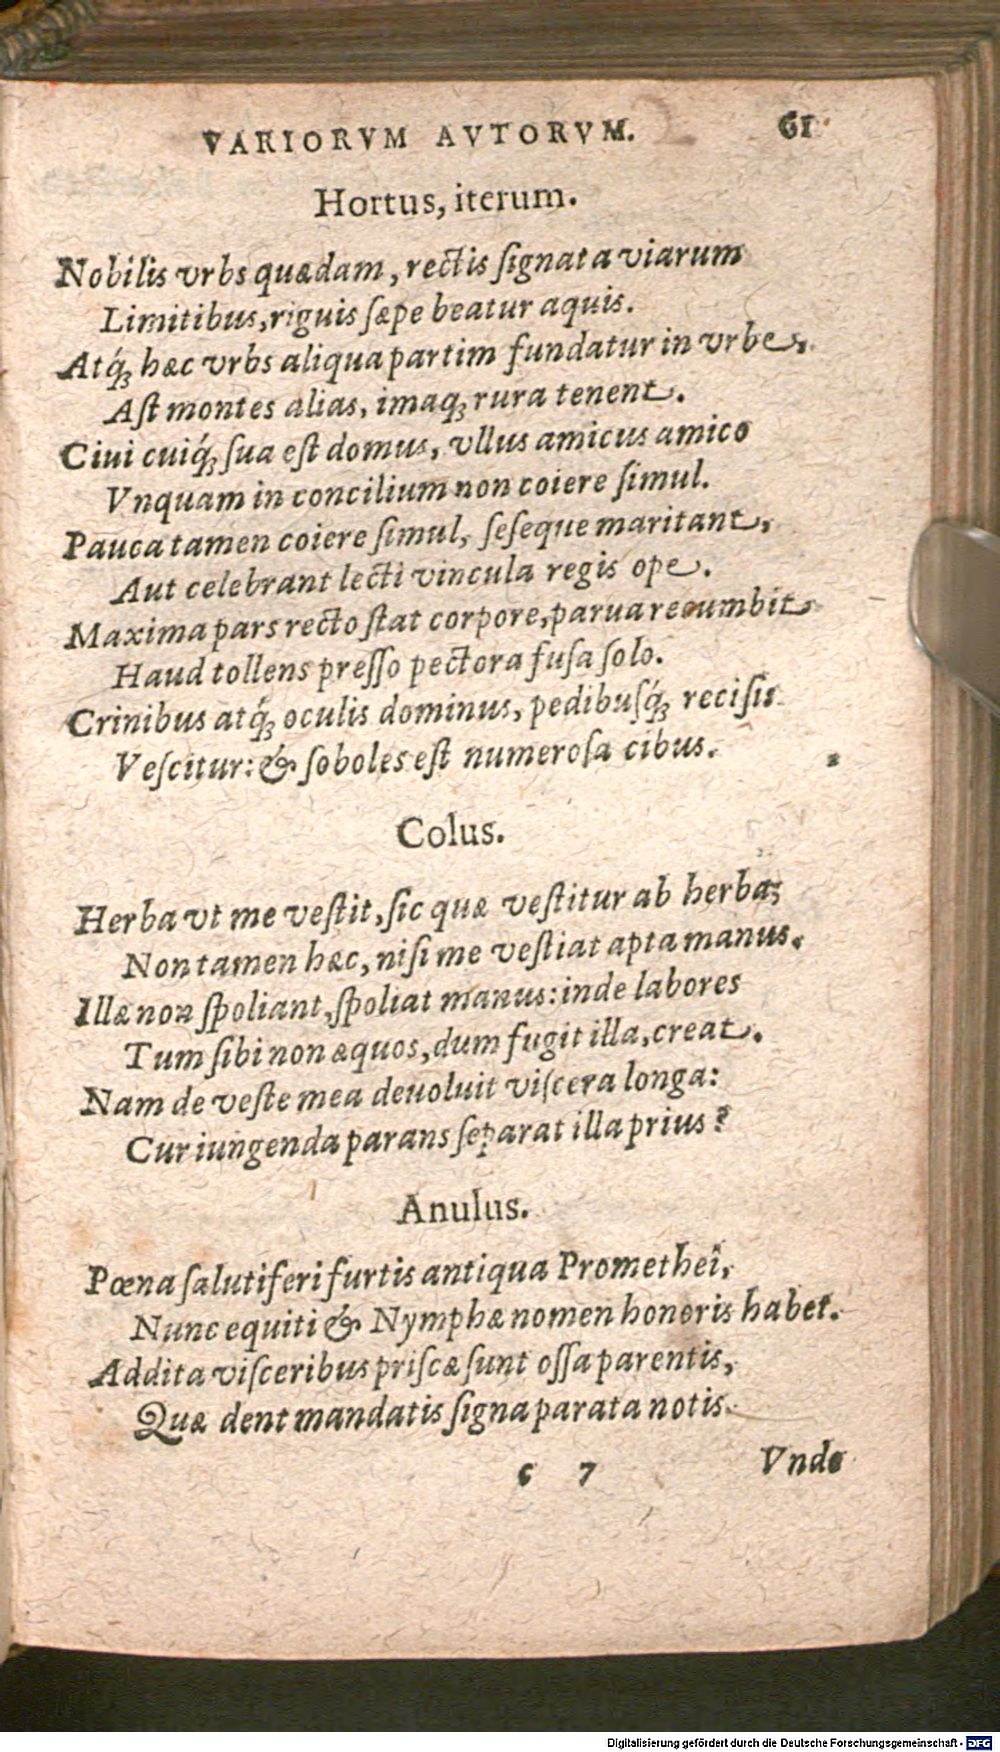 VARIORVM AVTORVM. 61
Hortus, iterum.
Nobilis vrbs quædam, rectis ſignata viarum
Limitibus, riguis ſæpe beatur aquis.
Atq́ʒ hæc vrbs aliqua partim fundatur in vrbe,
Aſt montes alias, imaqʒ rura tenent.
Ciui cuiq́ʒ ſua eſt domus, vllus amicus amico
Vnquam in concilium non coiere ſimul.
Pauca tamen coiere ſimul, ſeſeque maritant,
Aut celebrant lecti vincula regis ope.
Maxima pars recto ſtat corpore, parua recumbit
Haud tollens preſſo pectora fuſa ſolo.
Crinibus atq́ʒ oculis dominus, pedibuſq́ʒ reciſis
Veſcitur: & ſoboles eſt numeroſa cibus.
Colus.
Herba vt me veſtit, ſic quæ veſtitur ab herba;
Non tamen hæc, niſi me veſtiat apta manus.
Illæ non ſpoliant, ſpoliat manus: inde labores
Tum ſibi non æquos, dum fugit illa, creat.
Nam de veſte mea deuoluit viſcera longa:
Cur iungenda parans ſeparat illa prius?
Anulus.
Pœna ſalutiferi furtis antiqua Promethei,
Nunc equiti & Nymphæ nomen honoris habet.
Addita viſceribus priſcæ ſunt oſſa parentis,
Quæ dent mandatis ſigna parata notis.
c 7 Vnde
Digitalisierung gefördert durch die Deutsche Forschungsgemeinschaft - DFG